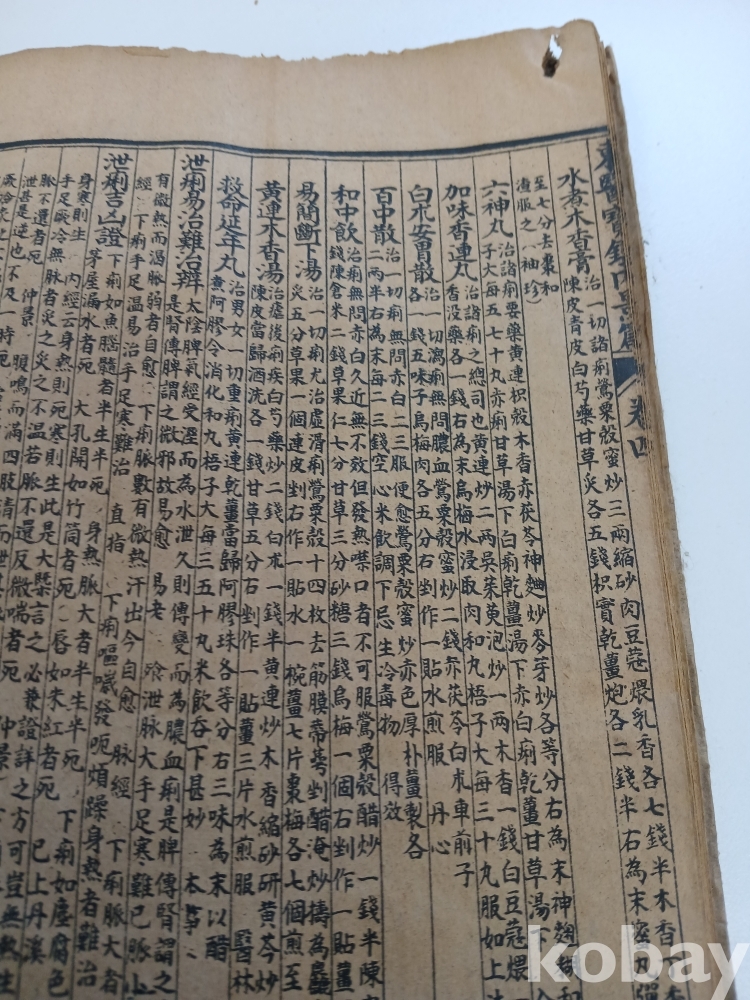 東醫寶鑑內景篇 卷四
水煮木香膏 治一切諸痢鶯粟殼蜜炒三兩縮砂肉豆蔻煨乳香各七錢半木香
陳皮青皮白芍藥甘草灸各五錢枳實乾薑炮各二錢半右為末蜜丸彈
至七分去棗和
渣服之 袖珍
六神丸 治諸痢要藥黃連枳殼木香赤茯苓神麯炒麥芽炒各等分右為末神麯糊和
丸子大每五七十丸赤痢甘草湯下白痢乾薑湯下赤白痢乾薑甘草湯下 入
加味香連丸 治諸痢之總司也黃連炒二兩吳茱萸泡炒一兩木香一錢白豆蔻煨一
香沒藥各一錢右為末烏梅水浸取肉和丸梧子大每三十丸服如上法
白朮安胃散 治一切瀉痢無問膿血鶯粟殼蜜炒二錢赤茯苓白朮車前子
各一錢五味子烏梅肉各五分右剉作一貼水煎服 丹心
百中散 治一切痢無問赤白二三服便愈鶯粟殼蜜炒赤色厚朴薑製各
二兩半右為末每二三錢空心米飲調下忌生冷毒物 得效
和中飲 治痢無問赤白久近無不效但發熱噤口者不可服鶯粟殼醋炒一錢半陳皮
錢陳倉米二錢草果仁七分甘草三分砂糖三錢烏梅一個右剉作一貼薑
易簡斷下湯 治一切痢尤治虛滑痢鶯粟殼十四枚去筋膜蒂萼剉醋淹炒擣為麤
灸五分草果一個連皮剉右作一貼水一椀薑七片棗梅各七個煎至
黃連木香湯 治虛後痢疾白芍藥炒二錢白朮一錢半黃連炒木香縮砂研黃芩炒
陳皮當歸酒洗各一錢甘草五分右剉作一貼薑三片水煎服 醫林
救命延年丸 治男女一切重痢黃連乾薑當歸阿膠珠各等分右三味為末以醋
煮阿膠令消化和丸梧子大每三五十丸米飲吞下甚妙 本事
泄痢易治難治辨 太陰脾氣經受溼而為水泄久則傳變而為膿血痢是脾傳腎謂之
是腎傳脾謂之微邪故易愈 易老 飱泄脈大手足寒難已脈小
有微熱而渴脈弱者自愈 下痢脈數有微熱汗出今自愈 脈經 下痢脈大者
經 下痢手足溫易治手足寒難治 直指 下痢嘔噦發呃煩躁身熱者難治
泄痢吉凶證 下痢如魚腦髓者半生半死 身熱脈大者半生半死 下痢如塵腐色
茅屋漏水者死 大孔開如竹筒者死 唇如朱紅者死 已上丹溪
身寒則生 內經云身熱則死寒則生此是大槩言之必兼證詳之方可豈無熱生
手足厥冷無脈者灸之灸之不溫若脈不還反微喘者死 仲景
脈不還者死 仲景 腹鳴而滿四肢清而泄
泄甚是逆也不及一時死